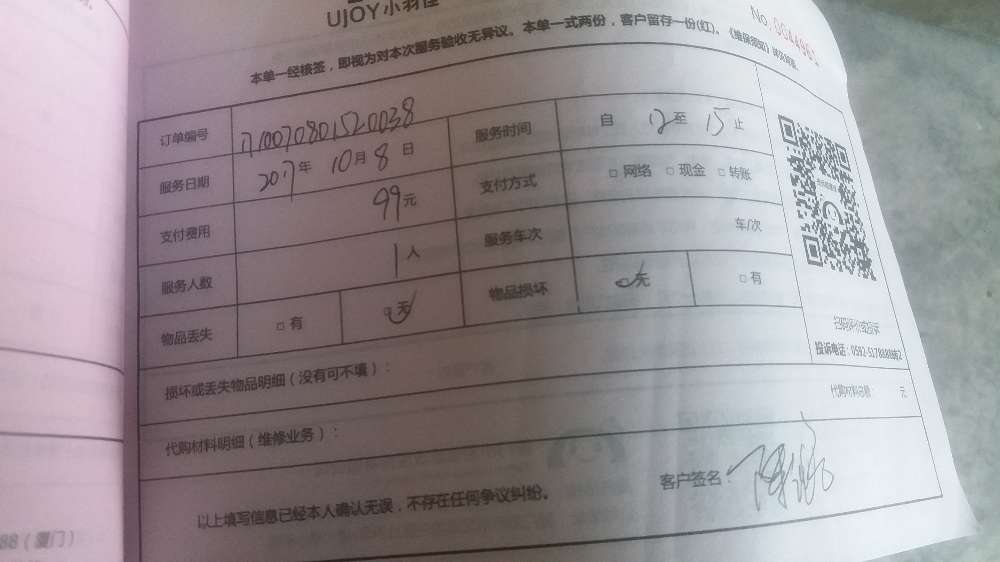 UJOY小羽佳
No. 0044961
本单一经核签，即视为对本次服务验收无异议。本单一式两份，客户留存一份(红)。《维保须知》详见背面
订单编号
服务时间 自 12 至 15 止
服务日期 2017年 10月 8日
支付方式 □ 网络 □ 现金 □ 转账
支付费用 99元
服务车次 车/次
服务人数 1人
物品丢失 □ 有 □ 无
物品损坏 □ 无 □ 有
投诉电话：0592-5178888转2
损坏或丢失物品明细（没有可不填）：
代购材料总额： 元
代购材料明细（维修业务）：
客户签名：
以上填写信息已经本人确认无误，不存在任何争议纠纷。
88（厦门）